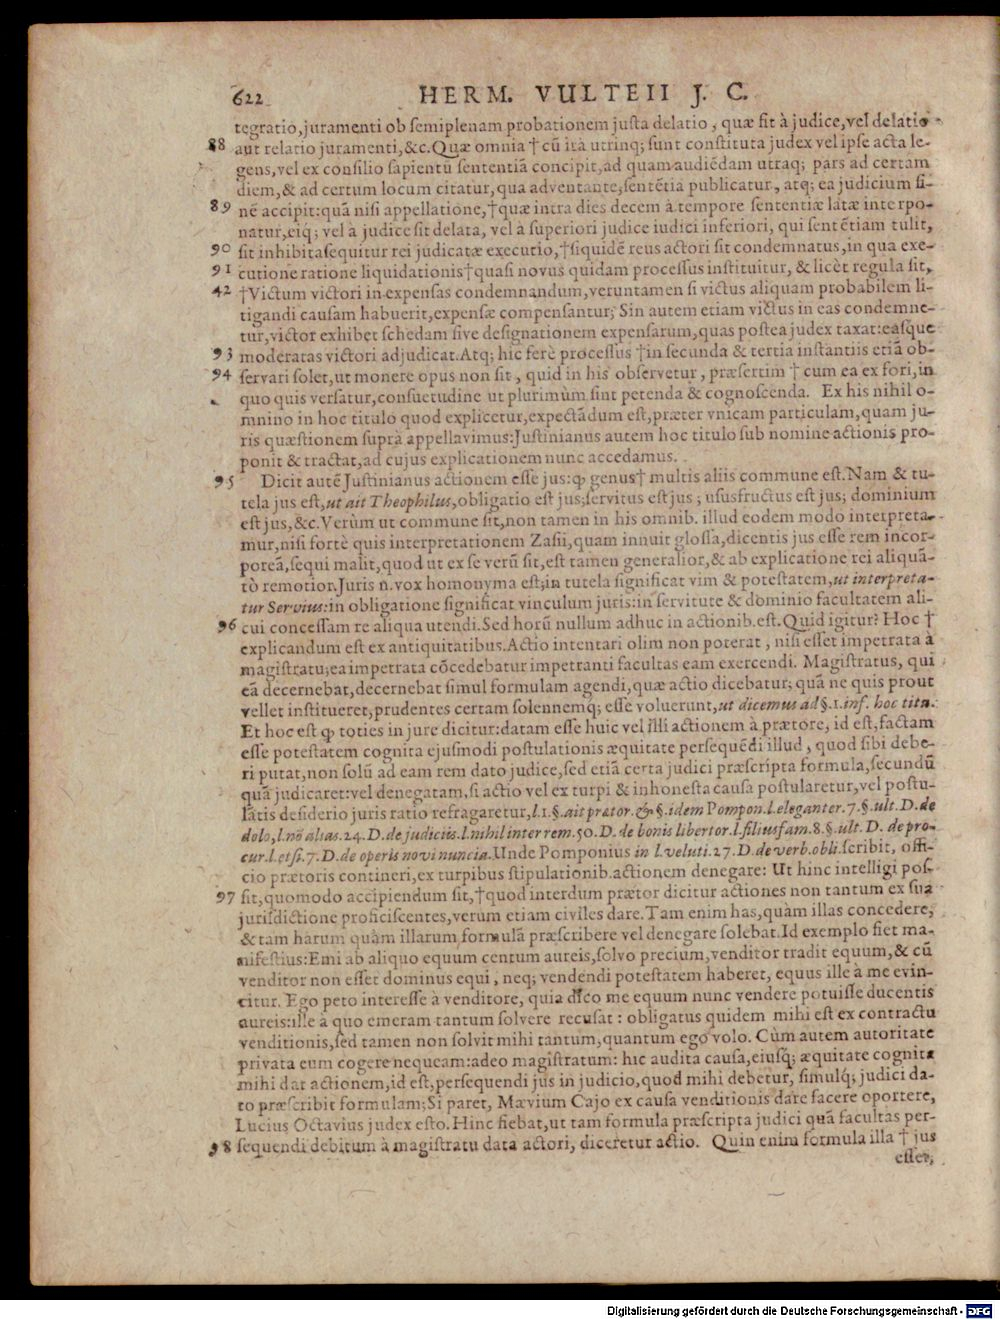 622 HERM. VULTEII J. C.
tegratio, juramenti ob ſemiplenam probationem juſta delatio, quæ fit à judice, vel delatio
88 aut relatio juramenti, &c. Quæ omnia † cū ità utrinq; ſunt conſtituta judex vel ipſe acta le-
gens, vel ex conſilio ſapientū ſententiā concipit, ad quam audiēdam utraq; pars ad certam
diem, & ad certum locum citatur, qua adventante, ſentētia publicatur, atq; ea judicium fi-
89 nē accipit: quā niſi appellatione, † quæ intra dies decem à tempore ſententiæ latæ interpo-
natur, eiq; vel à judice ſit delata, vel à ſuperiori judice iudici inferiori, qui ſentētiam tulit,
90 ſit inhibita ſequitur rei judicatæ executio, † ſiquidē reus actori ſit condemnatus, in qua exe-
91 cutione ratione liquidationis † quaſi novus quidam proceſſus inſtituitur, & licèt regula ſit,
42 † Victum victori in expenſas condemnandum, veruntamen ſi victus aliquam probabilem li-
tigandi cauſam habuerit, expenſæ compenſantur; Sin autem etiam victus in eas condemne-
tur, victor exhibet ſchedam ſive deſignationem expenſarum, quas poſtea judex taxat: eaſque
93 moderatas victori adjudicat. Atq; hic ferè proceſſus † in ſecunda & tertia inſtantiis etiā ob-
94 ſervari ſolet, ut monere opus non ſit, quid in his obſervetur, præſertim † cum ea ex fori, in
quo quis verſatur, conſuetudine ut plurimùm ſint petenda & cognoſcenda. Ex his nihil o-
mnino in hoc titulo quod explicetur, expectādum eſt, præter vnicam particulam, quam ju-
ris quæſtionem ſuprà appellavimus: Juſtinianus autem hoc titulo ſub nomine actionis pro-
ponit & tractat, ad cujus explicationem nunc accedamus.
95 Dicit autē Juſtinianus actionem eſſe jus: ꝙ genus † multis aliis commune eſt. Nam & tu-
tela jus eſt, ut ait Theophilus, obligatio eſt jus; ſervitus eſt jus; uſusfructus eſt jus; dominium
eſt jus, &c. Verùm ut commune ſit, non tamen in his omnib. illud eodem modo interpreta-
mur, niſi fortè quis interpretationem Zaſii, quam innuit gloſſa, dicentis jus eſſe rem incor-
poreā, ſequi malit, quod ut ex ſe verū ſit, eſt tamen generalior, & ab explicatione rei aliquā-
tò remotior. Juris n. vox homonyma eſt; in tutela ſignificat vim & poteſtatem, ut interpreta-
tur Servius: in obligatione ſignificat vinculum juris: in ſervitute & dominio facultatem ali-
96 cui conceſſam re aliqua utendi. Sed horū nullum adhuc in actionib. eſt. Quid igitur? Hoc †
explicandum eſt ex antiquitatibus. Actio intentari olim non poterat, niſi eſſet impetrata à
magiſtratu; ea impetrata cōcedebatur impetranti facultas eam exercendi. Magiſtratus, qui
eā decernebat, decernebat ſimul formulam agendi, quæ actio dicebatur; quā ne quis prout
vellet inſtitueret, prudentes certam ſolennemq; eſſe voluerunt, ut dicemus ad §. 1. inf. hoc titu.
Et hoc eſt ꝙ toties in jure dicitur: datam eſſe huic vel illi actionem à prætore, id eſt, factam
eſſe poteſtatem cognita ejuſmodi poſtulationis æquitate perſequēdi illud, quod ſibi debe-
ri putat, non ſolū ad eam rem dato judice, ſed etiā certa judici præſcripta formula, ſecundū
quā judicaret: vel denegatam, ſi actio vel ex turpi & inhoneſta cauſa poſtularetur, vel poſtu-
lātis deſiderio juris ratio refragaretur, l. 1. §. ait prætor. & §. idem Pompon. l. eleganter. 7. §. ult. D. de
dolo, l. nō alias. 24. D. de judiciis. l. nihil inter rem. 50. D. de bonis libertor. l. filiusfam. 8. §. ult. D. de pro-
cur. l. etſi. 7. D. de operis novi nuncia. Unde Pomponius in l. veluti. 27. D. de verb. obli. ſcribit, offi-
cio prætoris contineri, ex turpibus ſtipulationib. actionem denegare: Ut hinc intelligi poſ-
97 ſit, quomodo accipiendum ſit, † quod interdum prætor dicitur actiones non tantum ex ſua
jurisdictione proficiſcentes, verum etiam civiles dare. Tam enim has, quàm illas concedere,
& tam harum quàm illarum formulā præſcribere vel denegare ſolebat. Id exemplo fiet ma-
nifeſtius: Emi ab aliquo equum centum aureis, ſolvo precium, venditor tradit equum, & cū
venditor non eſſet dominus equi, neq; vendendi poteſtatem haberet, equus ille à me evin-
citur. Ego peto intereſſe à venditore, quia dico me equum nunc vendere potuiſſe ducentis
aureis: ille à quo emeram tantum ſolvere recuſat: obligatus quidem mihi eſt ex contractu
venditionis, ſed tamen non ſolvit mihi tantum, quantum ego volo. Cùm autem autoritate
privata eum cogere nequeam: adeo magiſtratum: hic audita cauſa, eiuſq; æquitate cognita
mihi dat actionem, id eſt, perſequendi jus in judicio, quod mihi debetur, ſimulq; judici da-
to præſcribit formulam; Si paret, Mævium Cajo ex cauſa venditionis dare facere oportere,
Lucius Octavius judex eſto. Hinc fiebat, ut tam formula præſcripta judici quā facultas per-
98 ſequendi debitum à magiſtratu data actori, diceretur actio. Quin enim formula illa † jus
eſſet,
Digitalisierung gefördert durch die Deutsche Forschungsgemeinschaft - DFG